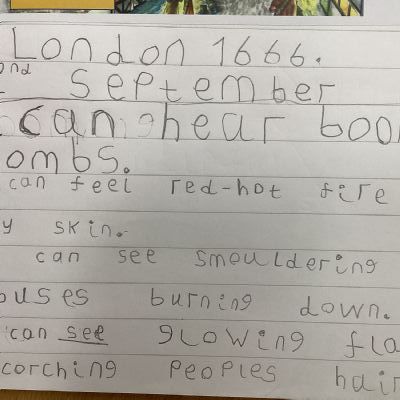 London 1666.
2nd September
can hear boo
ombs.
can feel red-hot fire
y skin.
can see smouldering
ouses burning down.
can see glowing fla
corching peoples hair